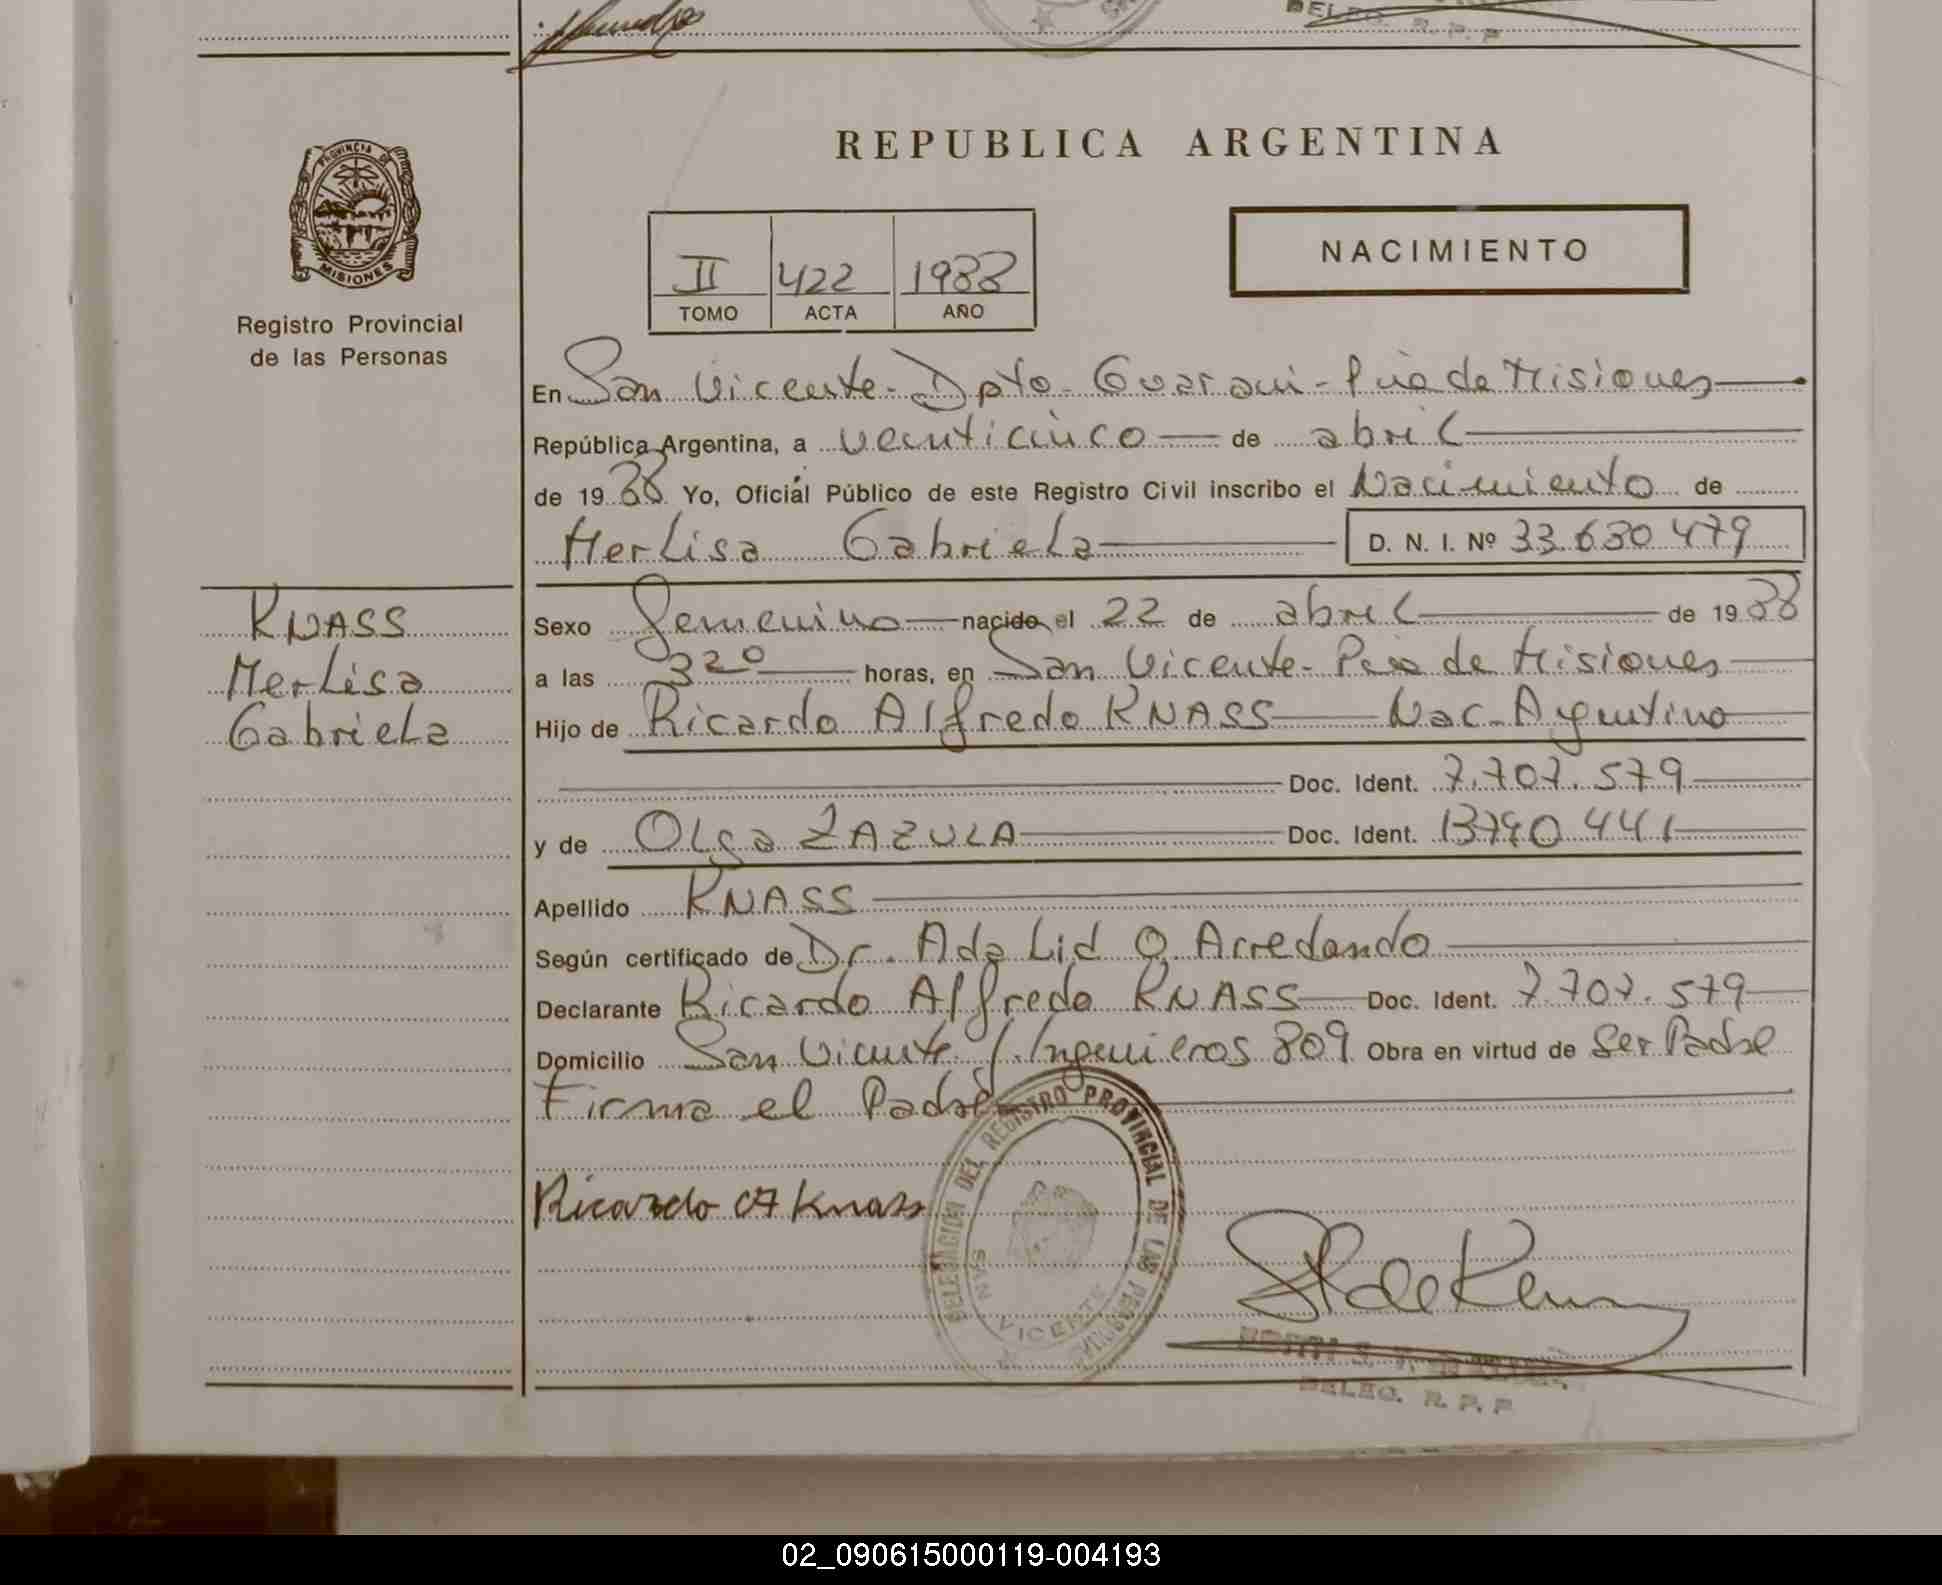 DELEG. R. P. P
PROVINCIA DE
MISIONES
Registro Provincial
de las Personas
REPUBLICA ARGENTINA
NACIMIENTO
II 422 1988
TOMO ACTA AÑO
En San Vicente - Dpto - Guarani - Pcia de Misiones
República Argentina, a veinticinco de abril
de 1988 Yo, Oficial Público de este Registro Civil inscribo el Nacimiento de
Merlisa Gabriela D. N. I. Nº 33.630 479
KNASS
Merlisa
Gabriela
Sexo Femenino nacido el 22 de abril de 1988
a las 3 20 horas, en San Vicente - Pcia de Misiones
Hijo de Ricardo Alfredo KNASS Nac. Argentino
Doc. Ident. 7.707.579
y de Olga ZAZULA Doc. Ident. 13790 441
Apellido KNASS
Según certificado de Dr. Adalid O. Arredondo
Declarante Ricardo Alfredo KNASS Doc. Ident. 7.707.579
Domicilio San Vicente J. Ingenieros 809 Obra en virtud de Ser Padre
Firma el Padre
Ricardo A Knass
DELEGACION DEL REGISTRO PROVINCIAL DE LAS PERSONAS
SAN VICENTE
DELEG. R. P. P
02_090615000119-004193